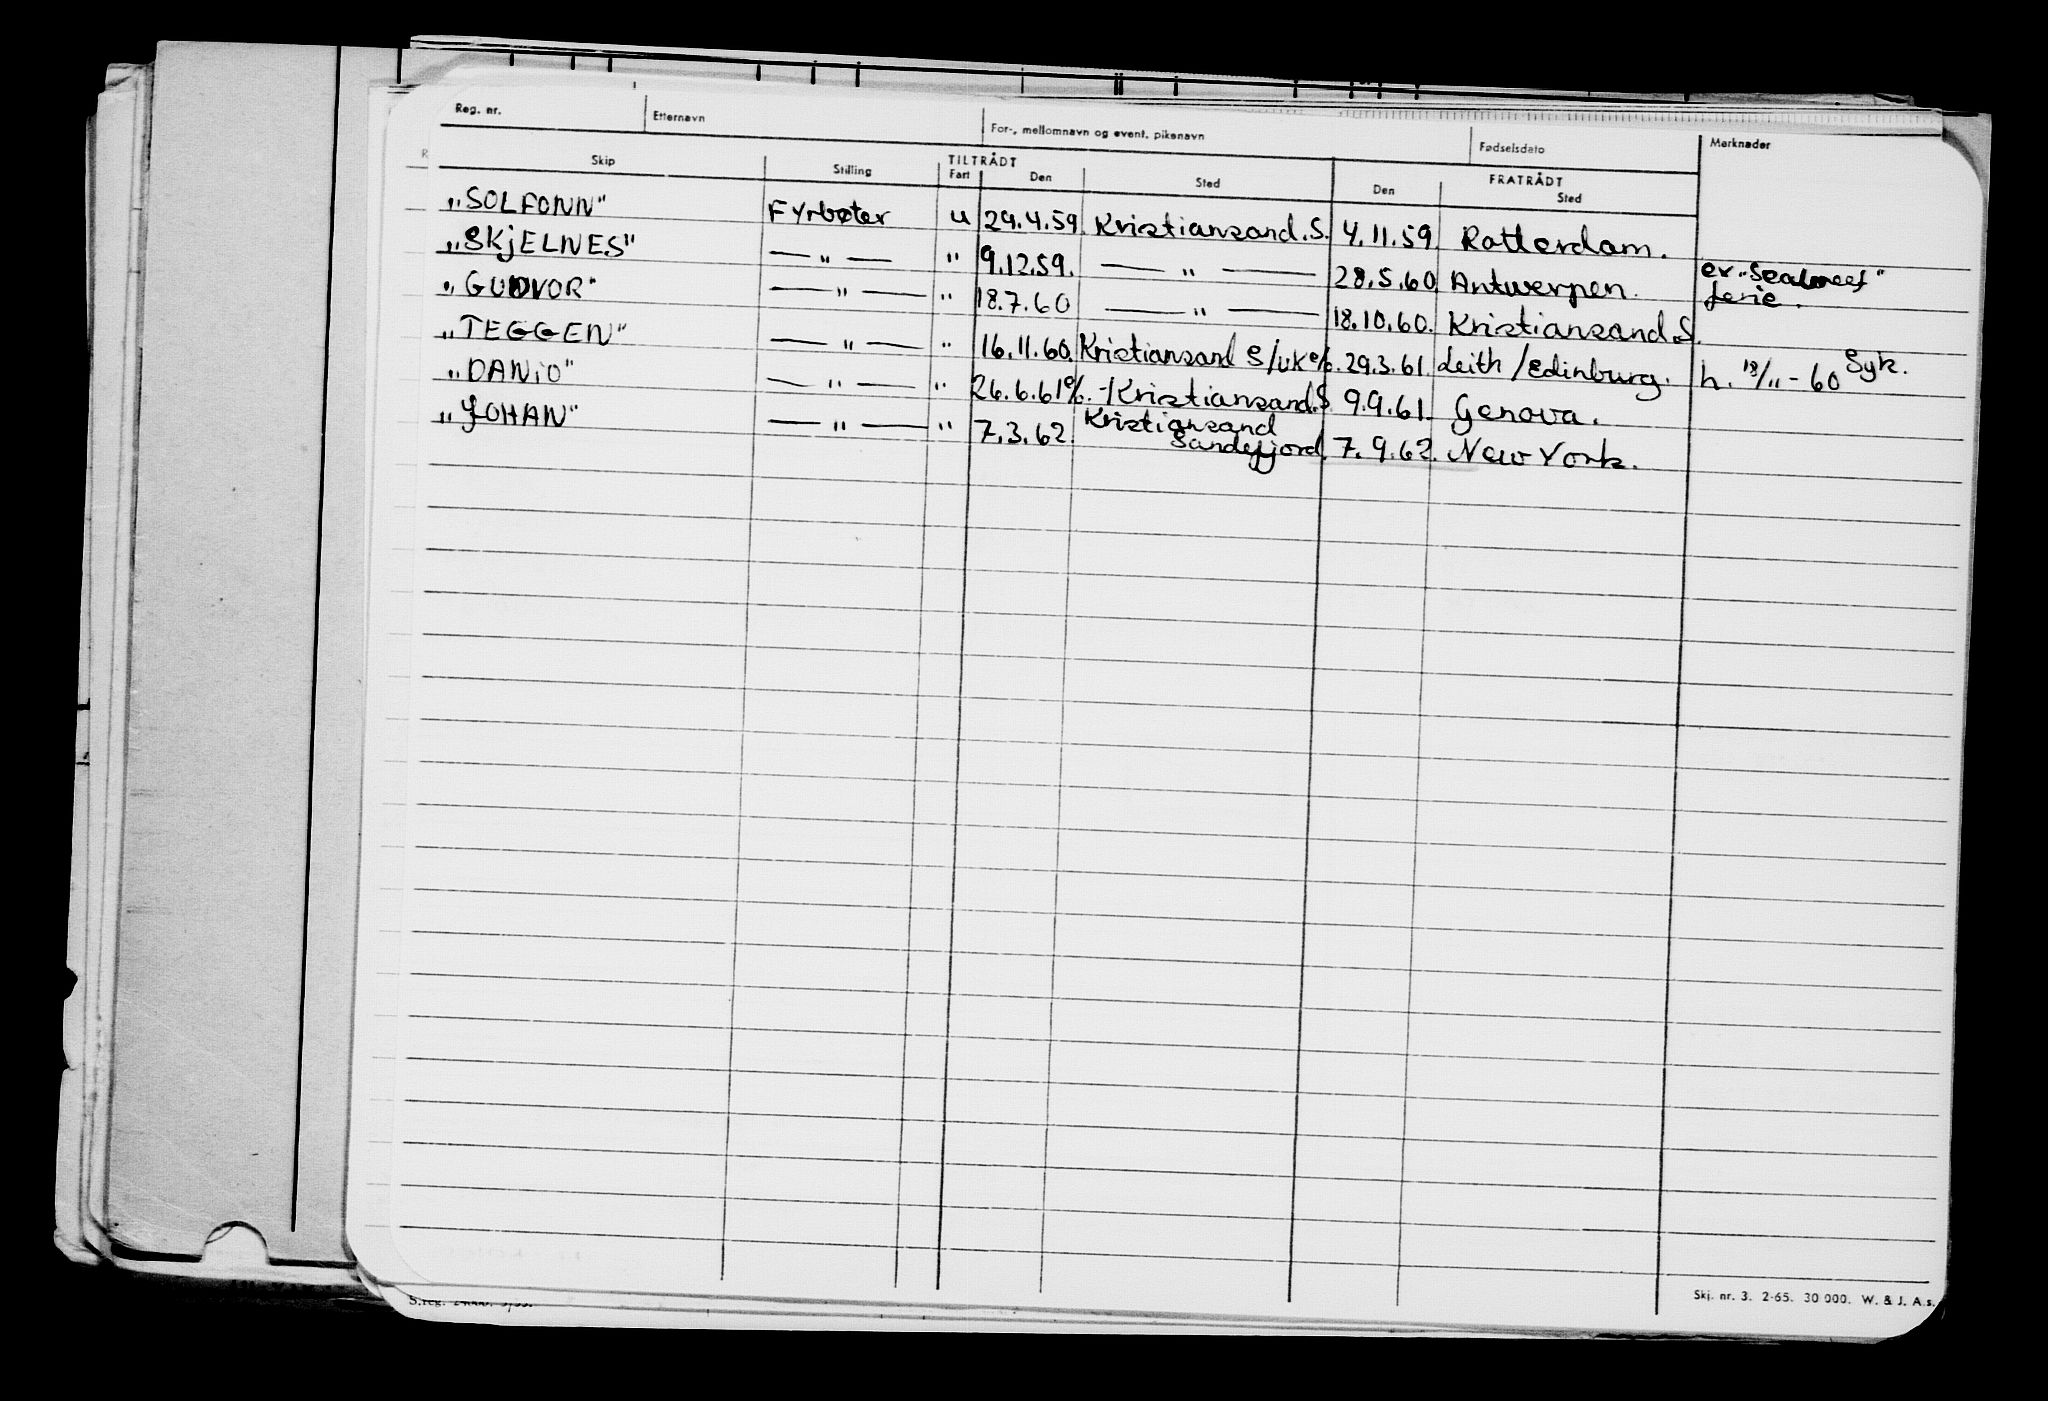 Reg. nr. Etternavn For-, mellomnavn og event. pikenavn Fødselsdato Merknader
TILTRÅDT FRATRÅDT
Skip Stilling Fart Den Sted Den Sted
„SOLFONN" Fyrbøter u 29.4.59. Kristiansand.S. 4.11.59. Rotterdam.
„SKjELNES" — „ — " 9.12.59. — „ — 28.5.60. Antwerpen. ex „Sealneef"
ferie.
„GUDVOR" — „ — " 18.7.60 — „ — 18.10.60. Kristiansand.S.
„TEGGEN" — „ — " 16.11.60. Kristiansand S/UK e/o. 29.3.61. Leith/Edinburg. h. 18/11-60 Syk.
„DANiO" — „ — " 26.6.61 e/o. -/Kristiansand.S. 9.9.61. Genova.
„JOHAN" — „ — " 7.3.62. Kristiansand
Sandefjord. 7.9.62. New York.
Skj. nr. 3. 2-65. 30 000. W. & J. A.s.